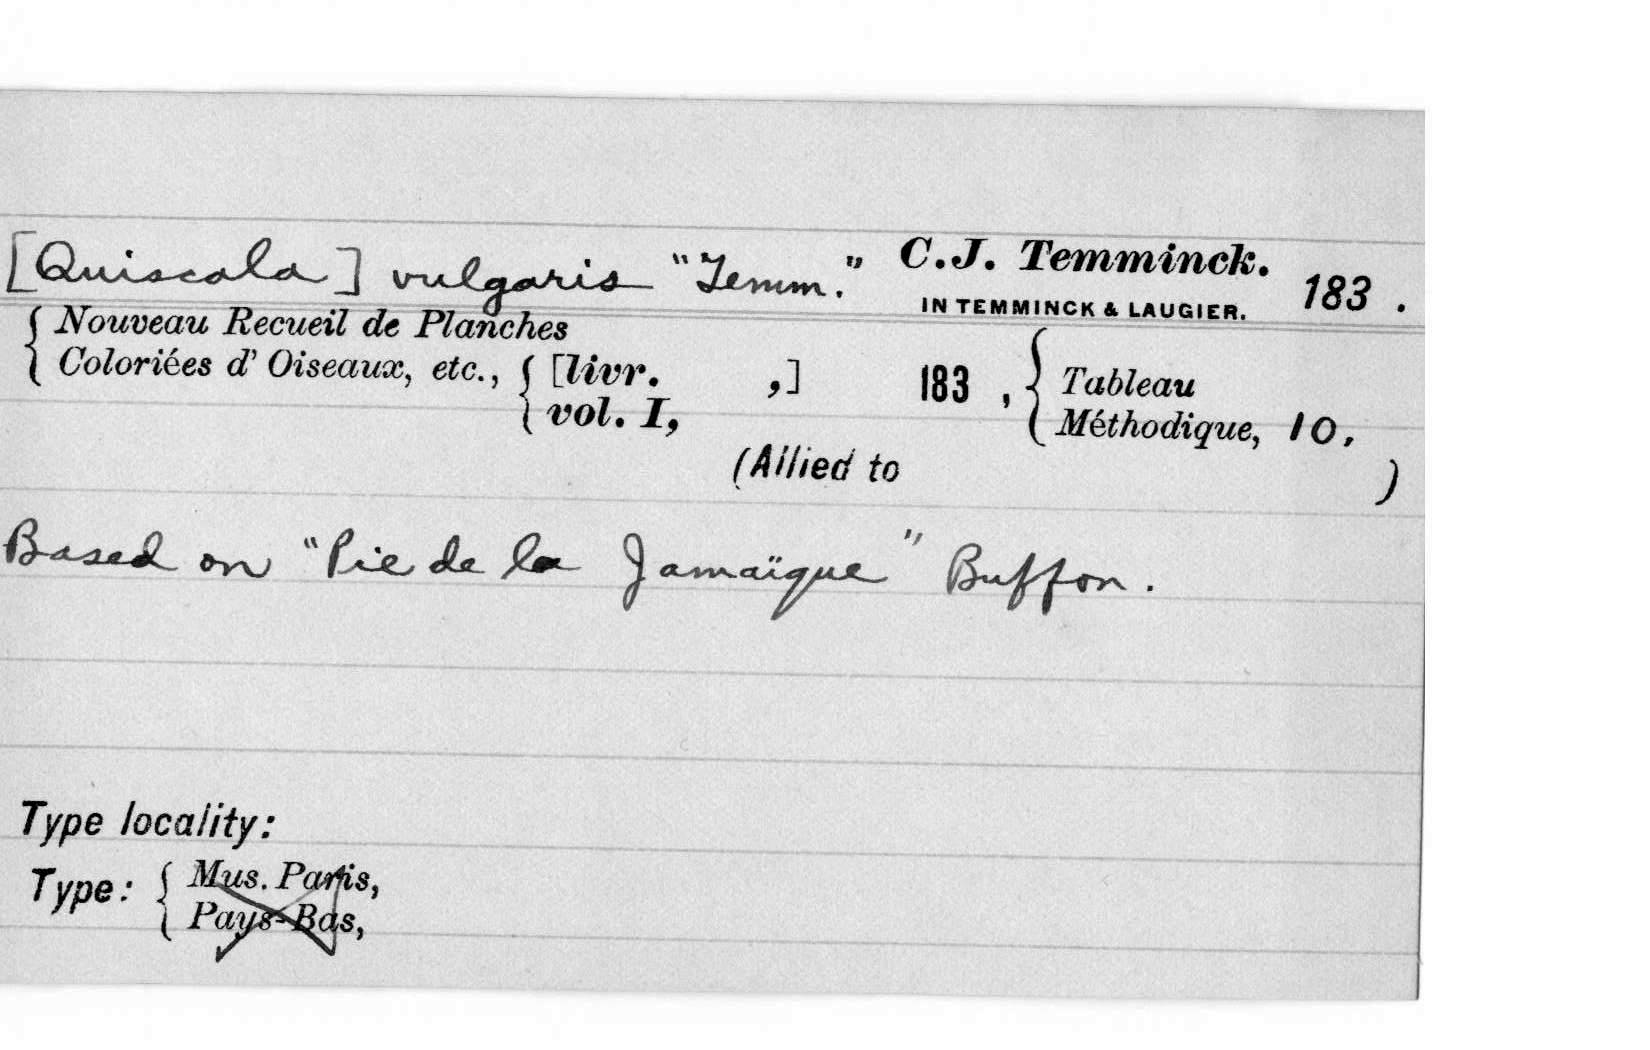 [Quiscala] vulgaris "Temm." C.J. Temminck. 183 .
IN TEMMINCK & LAUGIER.
Nouveau Recueil de Planches
Coloriées d' Oiseaux, etc., [livr. ,] 183 , Tableau
vol. I, Méthodique, 10.
(Allied to )
Based on "Pie de la Jamaïque" Buffon.
Type locality:
Type: Mus. Paris,
Pays-Bas,